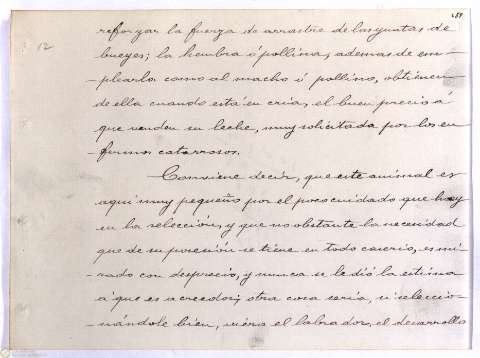 159
12
reforzar la fuerza de arrastre de las yuntas de
bueyes; la hembra ó pollina, ademas de em-
-plearla como al macho ú pollino, obtienen
de ella cuando está en cria, el buen precio á
que venden su leche, muy solicitada por los en
fermos catarrosos.
Conviene decir, que este animal es
aqui muy pequeño por el poco cuidado que hay
en la selección, y que no obstante la necesidad
que de su posesión se tiene en todo caserio, es mi-
-rado con desprecio, y nunca se le dió la estima
á que es acreedor; otra cosa seria, si seleccio-
-nándole bien, viera el labrador, el desarrollo